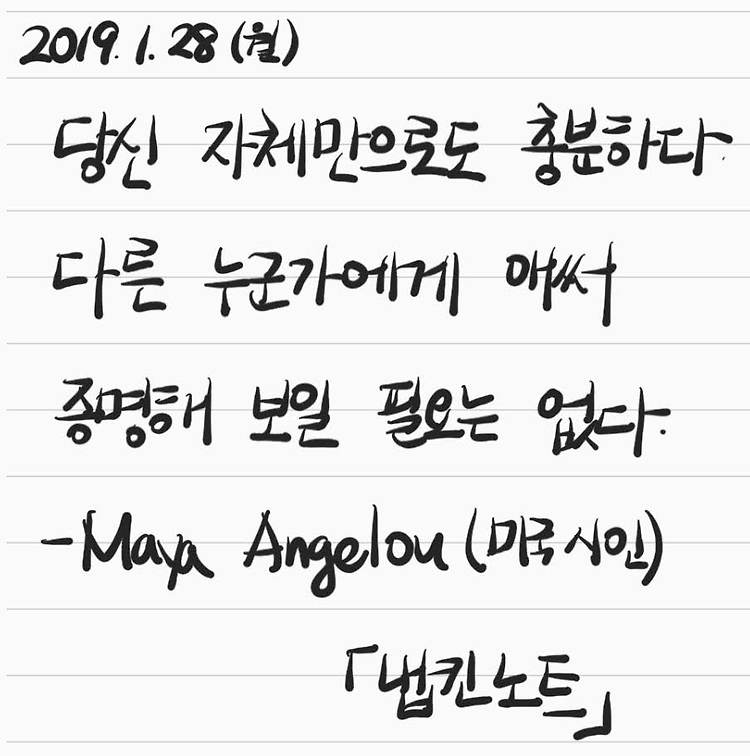 2019. 1. 28 (월)
당신 자체만으로도 충분하다.
다른 누군가에게 애써
증명해 보일 필요는 없다.
-Maya Angelou (미국 시인)
「냅킨노트」